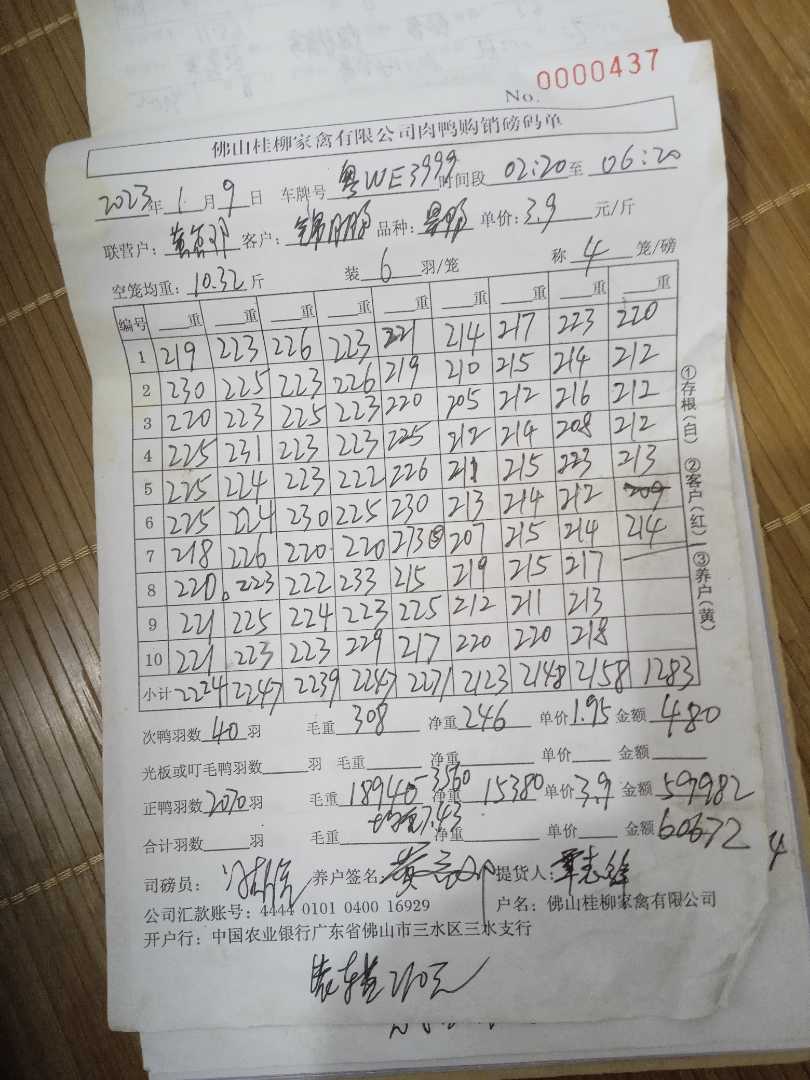 No. 0000437
佛山桂柳家禽有限公司肉鸭购销磅码单
2023年1月9日 车牌号 粤WE3999 时间段 02:20至 06:20
联营户: 客户: 品种: 单价: 3.9 元/斤
空笼均重: 10.32斤 装 6 羽/笼 称 4 笼/磅
编号 重 重 重 重 重 重 重 重 重
1 219 223 226 223 221 214 217 223 220
2 230 225 223 226 219 210 215 214 212
3 220 223 225 223 220 205 212 216 212
4 225 231 223 223 225 212 214 208 212
5 225 224 223 222 226 211 215 223 213
6 225 224 230 225 230 213 214 212 209
7 218 226 220 220 273⑤ 207 215 214 214
8 220 223 222 233 215 219 215 217
9 221 225 224 223 225 212 211 213
10 221 223 223 229 217 220 220 218
小计 2224 2247 2239 2247 2271 2123 2148 2158 1283
①存根(白) ②客户(红) ③养户(黄)
次鸭羽数 40 羽 毛重 308 净重 246 单价 1.95 金额 480
光板或叮毛鸭羽数 羽 毛重 净重 单价 金额
正鸭羽数 2070羽 毛重 18940-3560 净重 15380 单价 3.9 金额 59982
均重7.43
合计羽数 羽 毛重 净重 单价 金额 60672
4
司磅员: 养户签名: 提货人: 覃志锋
公司汇款账号: 4444 0101 0400 16929 户名: 佛山桂柳家禽有限公司
开户行: 中国农业银行广东省佛山市三水区三水支行
210元